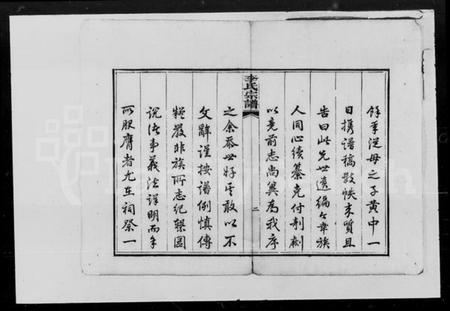 餘筆從母之子黃中一
日攜譜稿數帙來質且
告曰此先世遺編今幸族
人同心續纂克付剞劂
以竟前志尚冀為我序
李氏宗譜
二
之余忝世好烏敢以不
文辭謹按譜例慎傳
疑嚴非族所志紀槩圖
說諸事義法詳明而予
所服膺者尤在祠祭一